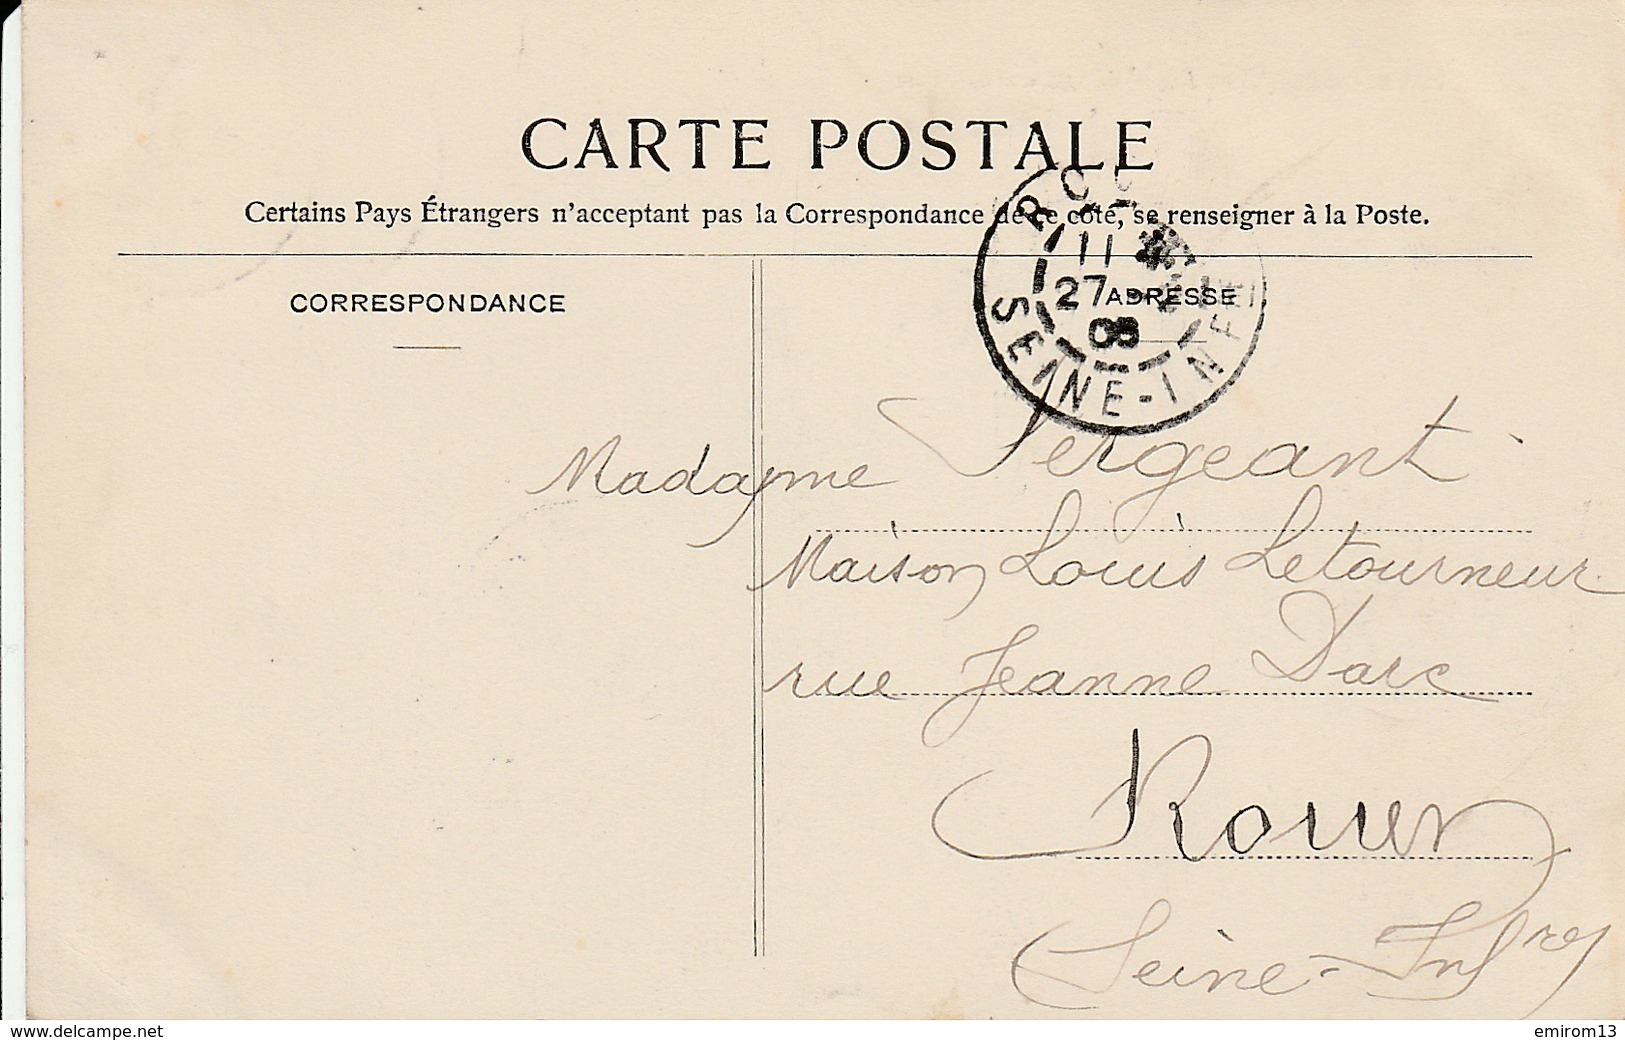 CARTE POSTALE
Certains Pays Étrangers n'acceptant pas la Correspondance de ce côté, se renseigner à la Poste.
CORRESPONDANCE
ADRESSE
11
27
08
SEINE-INFRE
Madame Sergeant
Maison Louis Letourneur
rue Jeanne Darc
Rouen
Seine-Infre
www.delcampe.net
emirom13